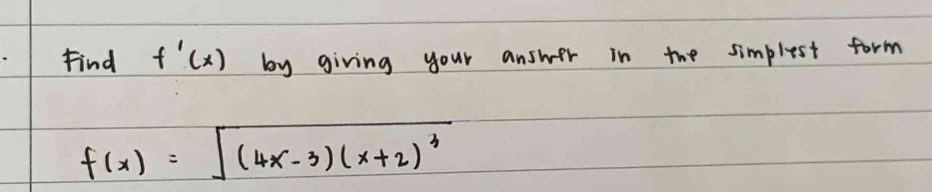 Find f'(x) by giving your answer in the simplest form
f(x) = √(4x-3)(x+2)³